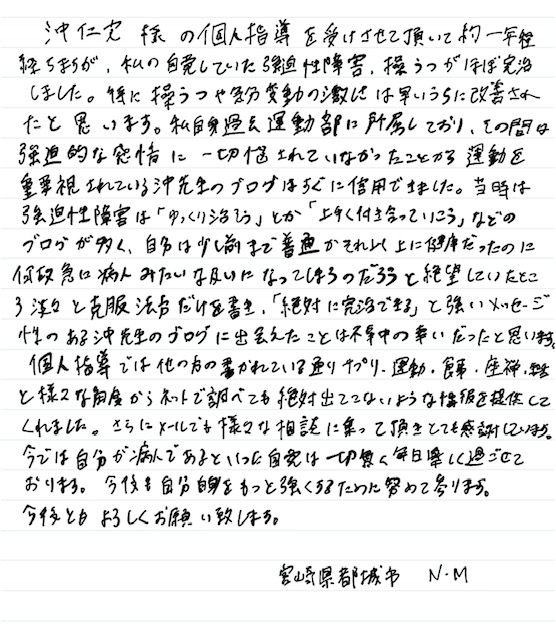 沖仁宏 様 の個人指導を受けさせて頂いて約一年程
経ちますが、私の自覚していた強迫性障害、操うつがほぼ完治
しました。特に操うつや気分変動の激しさは早いうちに改善され
たと思います。私自身過去運動部に所属しており、その間は
強迫的な感情に一切悩まされていなかったことから運動を
重要視されている沖先生のブログはすぐに信用できました。当時は
強迫性障害は「ゆっくり治そう」とか「上手く付き合っていこう」などの
ブログが多く、自分は少し前まで普通かそれ以上に健康だったのに
何故急に病人みたいな扱いになってしまうのだろうと絶望していたとこ
ろ淡々と克服法だけを書き、「絶対に完治できる」と強いメッセージ
性のある沖先生のブログに出会えたことは不幸中の幸いだったと思います。
個人指導では他の方の書かれている通りサプリ、運動、食事、座禅、
と様々な角度からネットで調べても絶対出てこないような情報を提供して
くれました。さらにメールでも様々な相談に乗って頂きとても感謝しています。
今では自分が病人であるといった自覚は一切無く毎日楽しく過ごせて
おります。今後も自分自身をもっと強くするために努めて参ります。
今後ともよろしくお願い致します。
宮崎県都城市 N・M